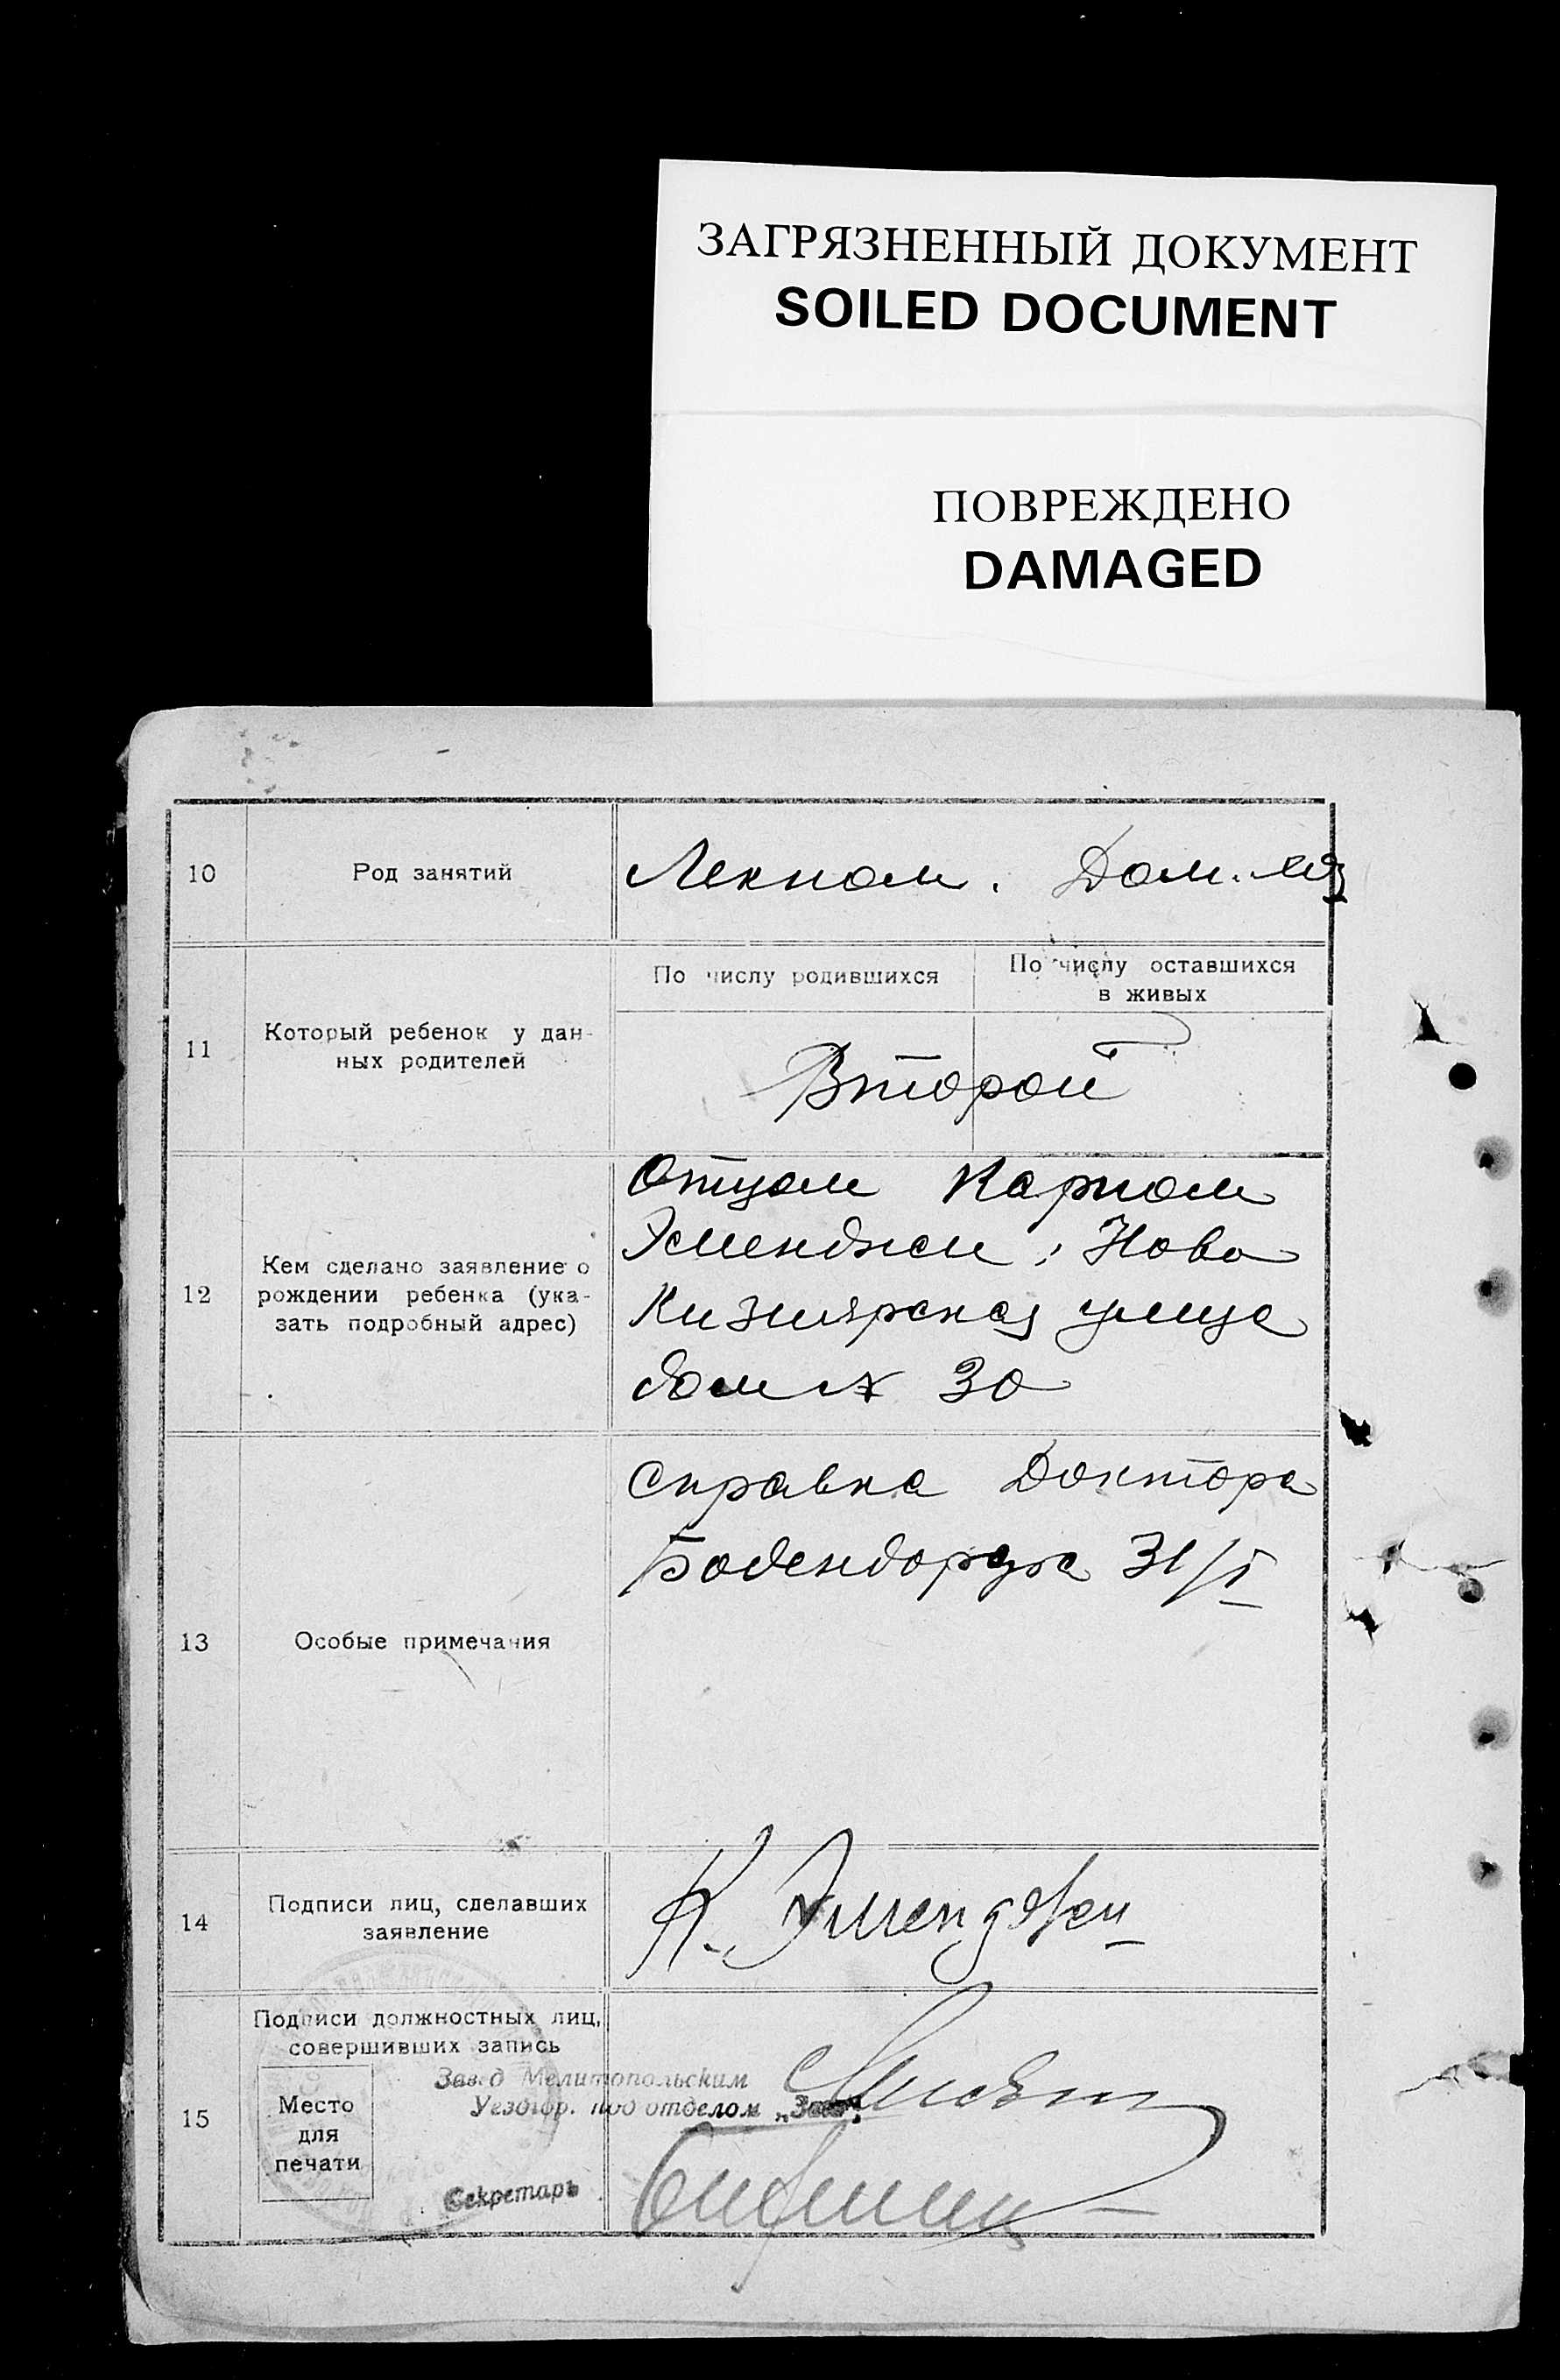 ЗАГРЯЗНЕННЫЙ ДОКУМЕНТ
SOILED DOCUMENT
ПОВРЕЖДЕНО
DAMAGED
10 Род занятий Лекпом. Дом. хоз
11 Который ребенок у дан-
ных родителей
По числу родившихся
По числу оставшихся
в живых
Второй
12 Кем сделано заявление о
рождении ребенка (ука-
зать подробный адрес)
Отцом Карпом
Эменджи, Ново
Кизиярская улица
дом № 30
13 Особые примечания
Справка Доктора
Бодендорфа 31/I
14 Подписи лиц, сделавших
заявление
К. Эменджи
15 Подписи должностных лиц,
совершивших запись
Место
для
печати
Зав.д Мелитопольским
Уездгор. под отделом „Загс“
Секретарь